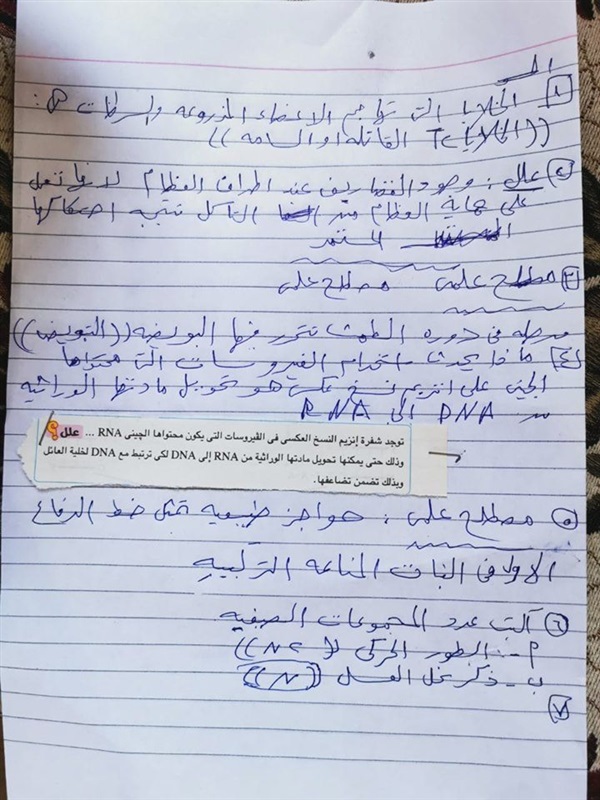 ١) الخلايا التى تهاجم الاعضاء المزروعه والسرطانات :
((الخلايا Tc القاتله او السامه))
٢) علل : وجود الغضاريف عند اطراف العظام لانها تعمل
على حماية العظام من التآكل نتيجه احتكاكها
المستمر
٣) مصطلح علمى مصطلح علمى
مرحله فى دوره الطمث تتحرر فيها البويضه ((التبويض))
٤) ماذا يحدث استخدام الفيروسات التى محتواها
الجينى على انزيم نسخ عكسى هو تحويل مادتها الوراثيه
من DNA الى RNA
علل؟ توجد شفرة إنزيم النسخ العكسى فى الفيروسات التى يكون محتواها الچينى RNA ...
وذلك حتى يمكنها تحويل مادتها الوراثية من RNA إلى DNA لكى ترتبط مع DNA لخلية العائل
وبذلك تضمن تضاعفها.
٥) مصطلح علمى : حواجز طبيعيه تمثل خط الدفاع
الاول فى النبات المناعه التركيبيه
٦) اكتب عدد المجموعات الصبغيه
أ- الطور الحركى ((2N))
ب- ذكر نحل العسل ((N))
٧)